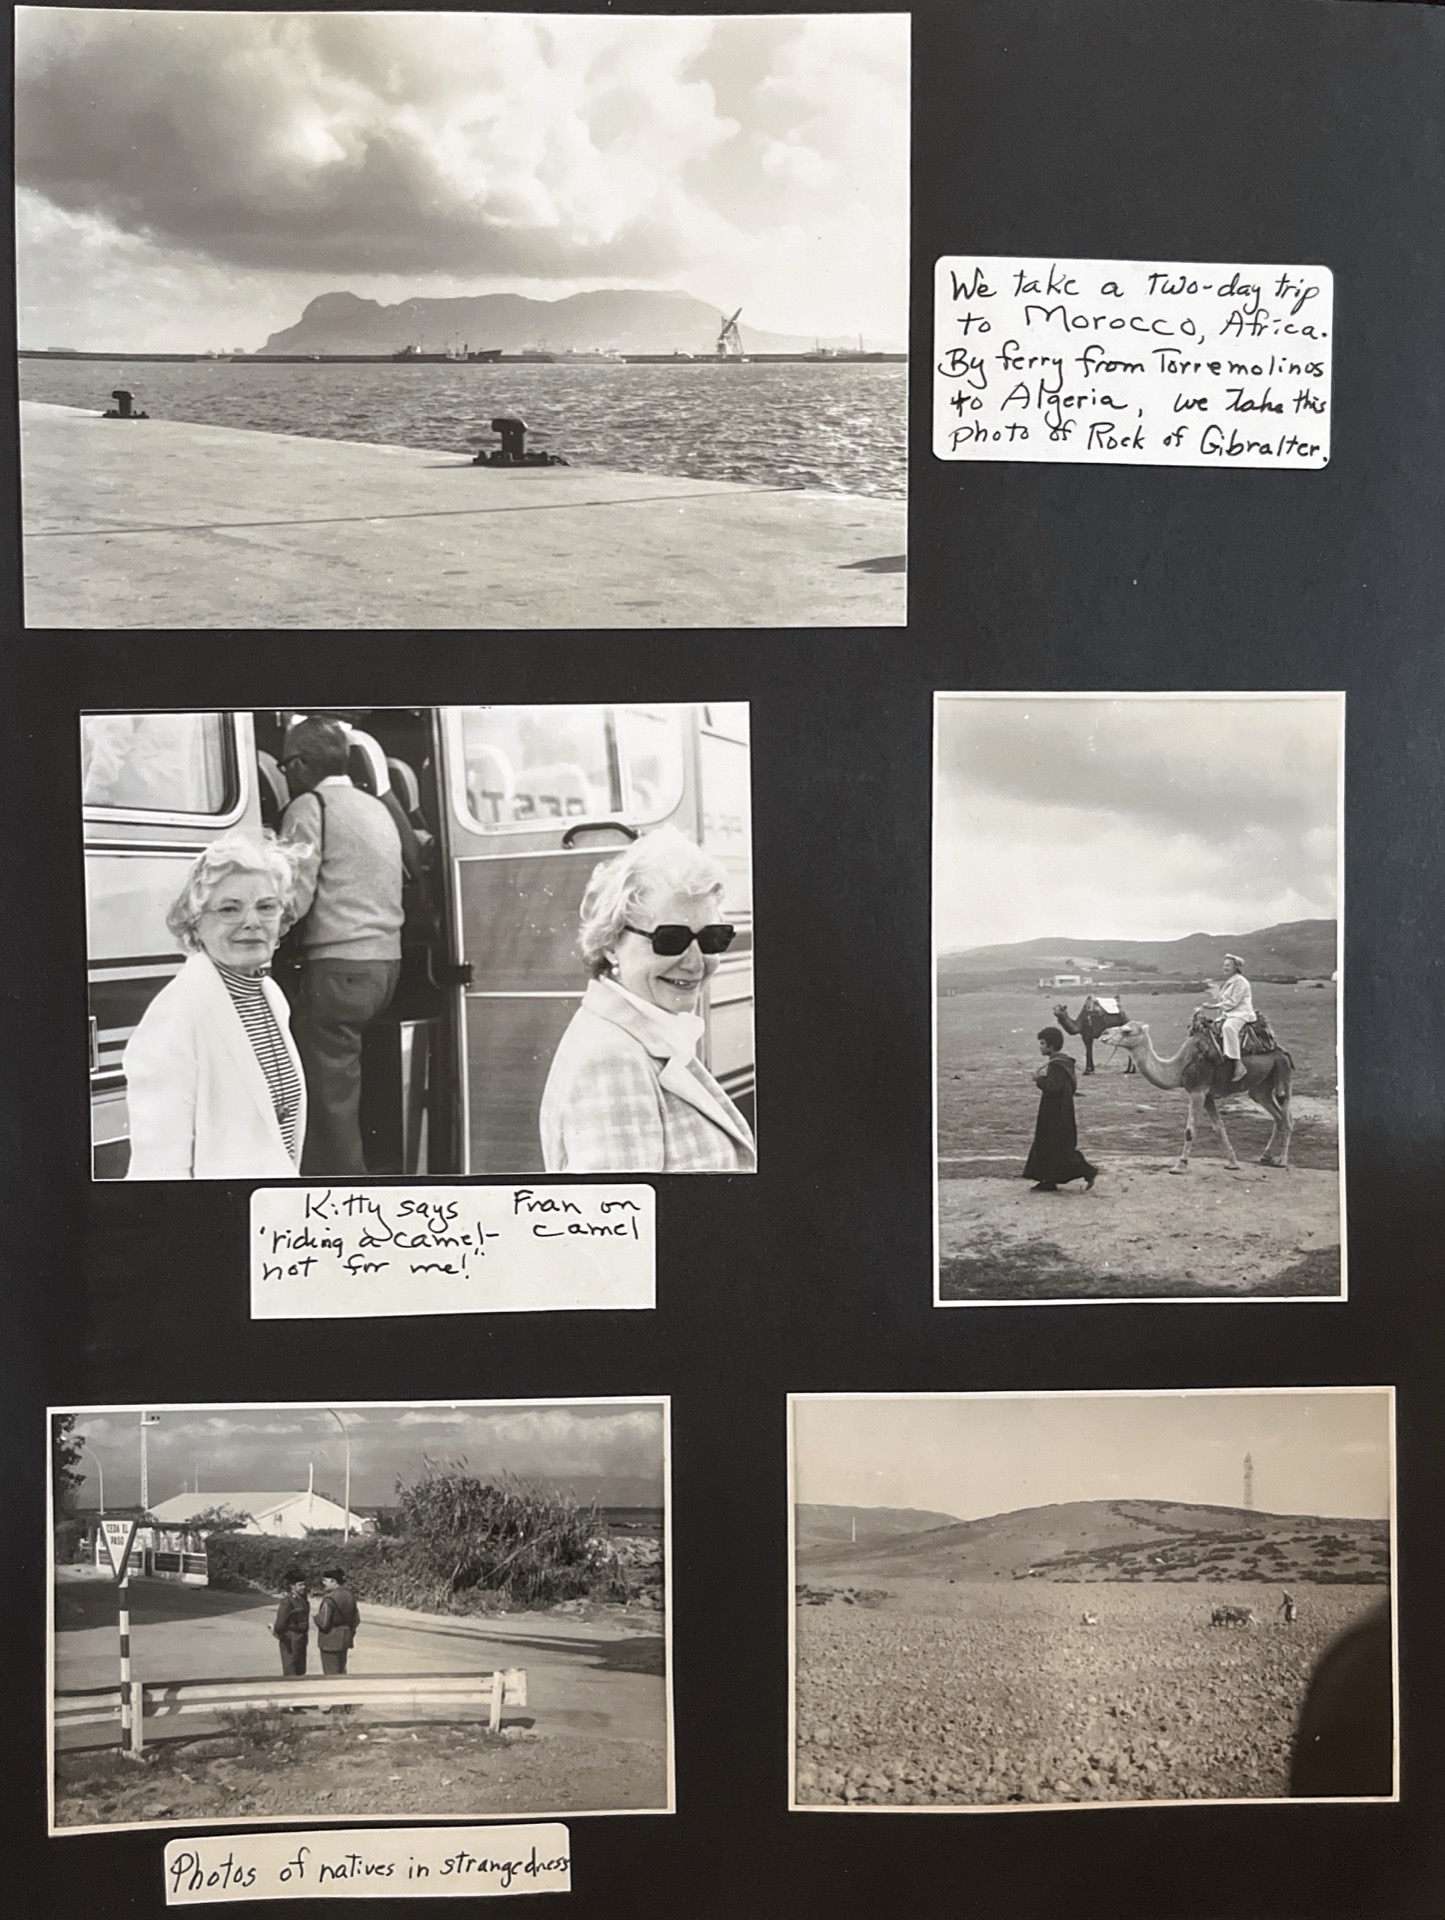 We take a two-day trip
to Morocco, Africa.
By ferry from Torremolinos
to Algeria, we take this
photo of Rock of Gibralter.
Kitty says
"riding a camel-
not for me!"
Fran on
camel
CEDA EL
PASO
Photos of natives in strangedness